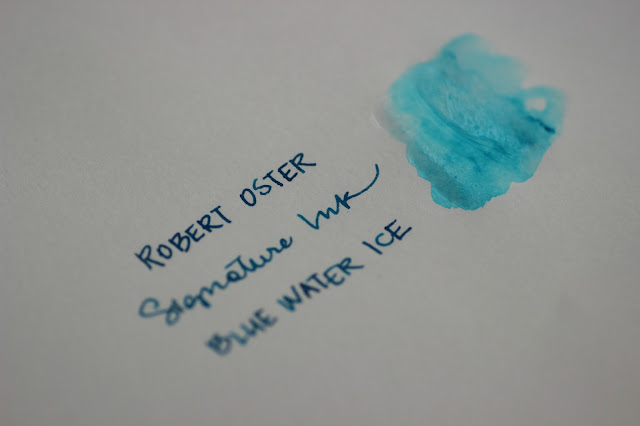 ROBERT OSTER
Signature Ink
BLUE WATER ICE